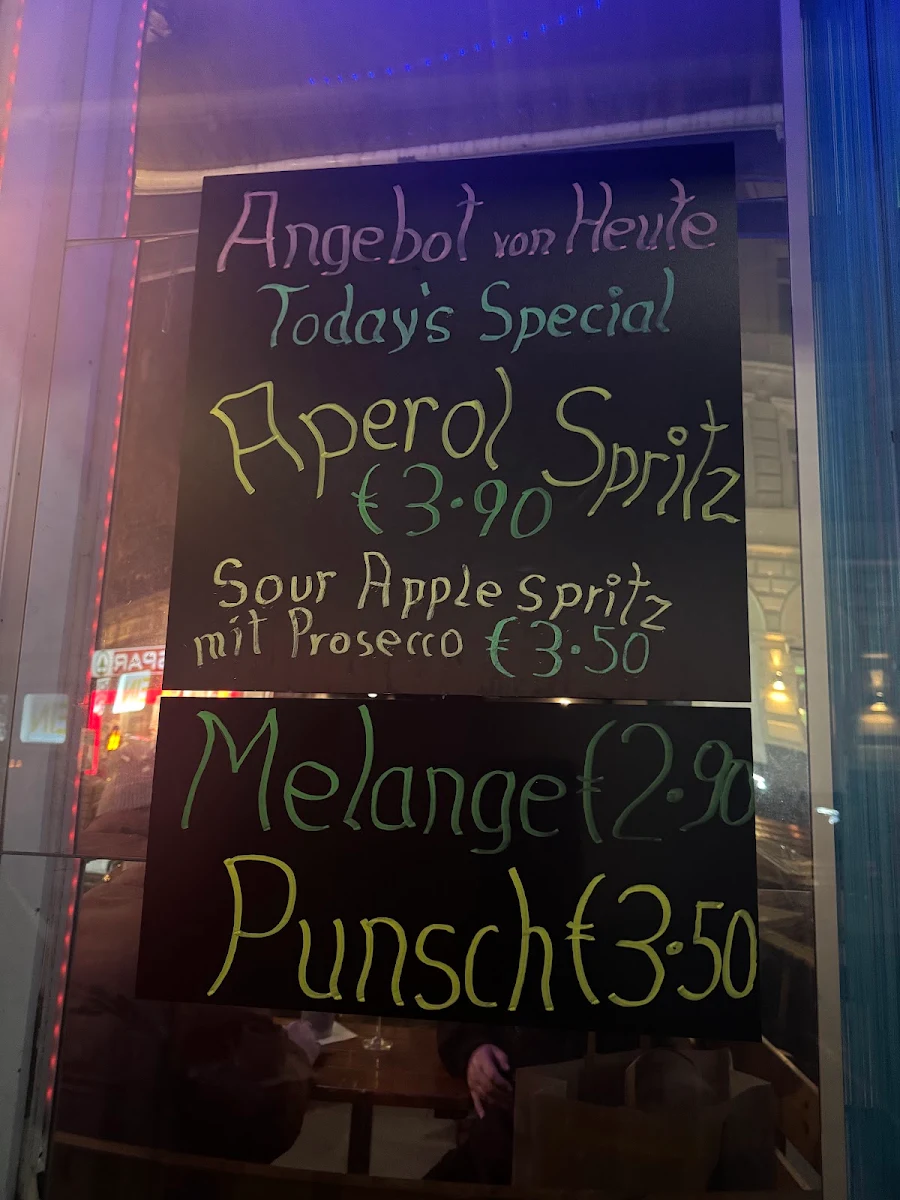 Angebot von Heute
Today's Special
Aperol Spritz
€3.90
Sour Apple Spritz
mit Prosecco €3.50
SPAR
Melange €2.90
Punsch €3.50